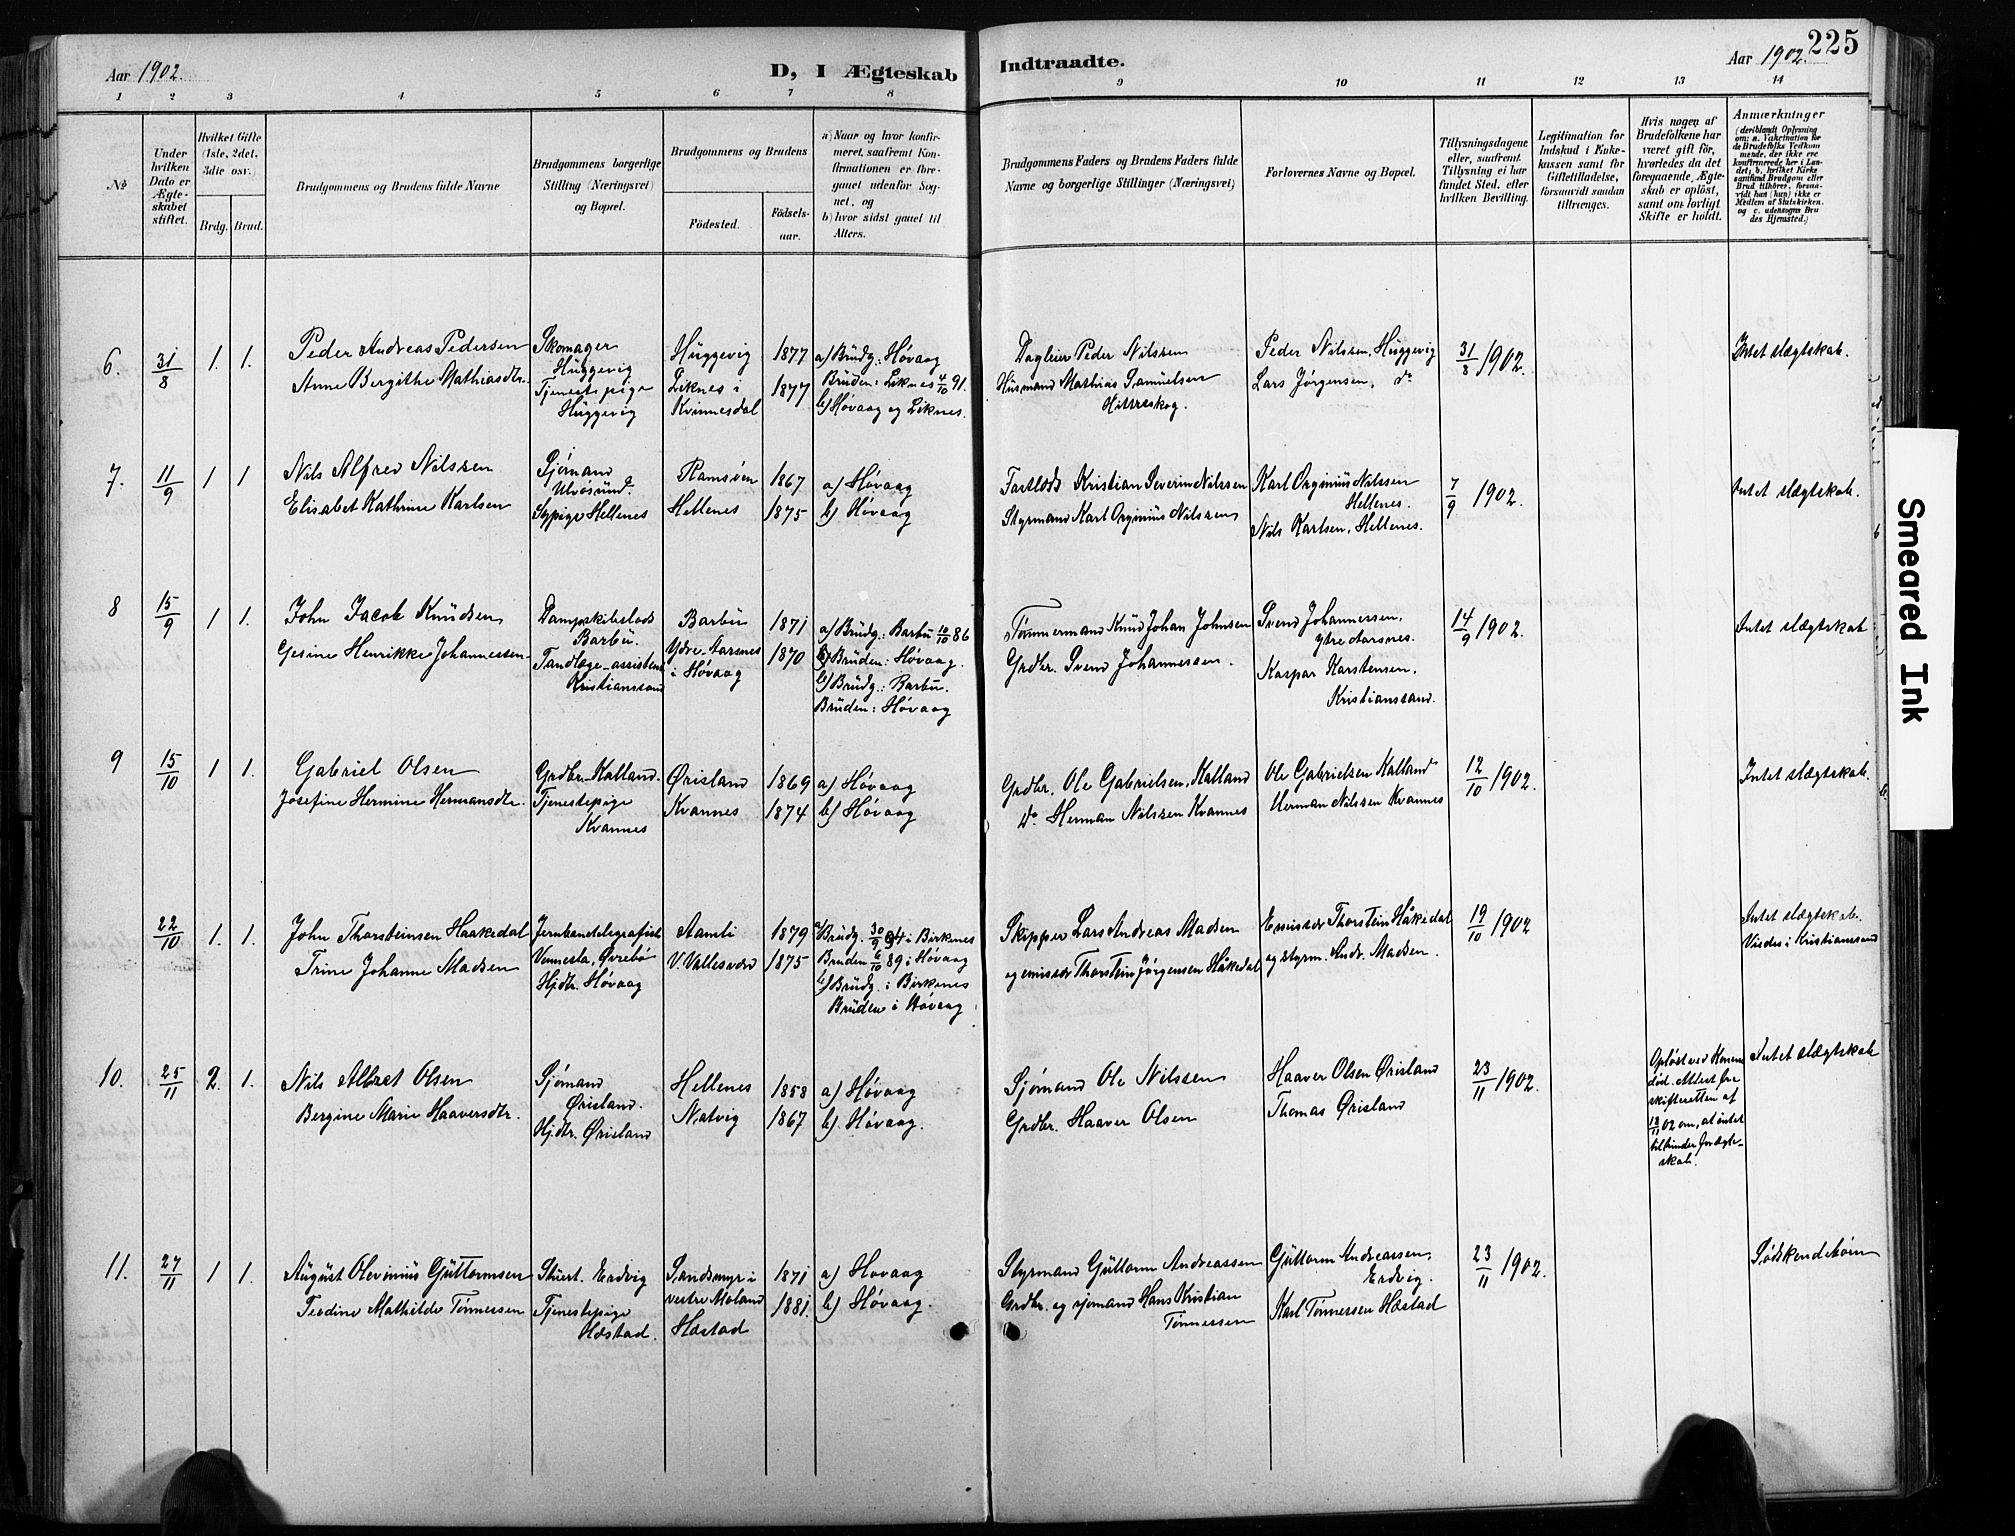 225
Aar 1902.
D, I Ægteskab Indtraadte.
Aar 1902.
1 2 3 4 5 6 7 8 9 10 11 12 13 14
№
Under hvilken Dato er Ægteskabet stiftet.
Hvilket Gifte (1ste, 2det, 3die osv.)
Brdg. Brud.
Brudgommens og Brudens fulde Navne
Brudgommens borgerlige Stilling (Næringsvei) og Bopæl.
Brudgommens og Brudens
Fødested.
Fødselsaar.
a) Naar og hvor konfirmeret, saafremt Konfirmationen er foregaaet udenfor Sognet, og
b) hvor sidst gaaet til Alters.
Brudgommens Faders og Brudens Faders fulde Navne og borgerlige Stillinger (Næringsvei)
Forlovernes Navne og Bopæl.
Tillysningsdagene eller, saafremt Tillysning ei har fundet Sted, efter hvilken Bevilling.
Legitimation for Indskud i Enkekassen samt for Giftetilladelse, forsaavidt saadan tiltrænges.
Hvis nogen af Brudefolkene har været gift før, hvorledes da det foregaaende Ægteskab er opløst, samt om lovligt Skifte er holdt.
Anmærkninger
(deriblandt Oplysning om: a. Vakcination for de Brudefolks Vedkommende, der ikke ere konfirmerede her i Landet; b. hvilket Kirkesamfund Brudgom eller Brud tilhører, forsaavidt han (hun) ikke er Medlem af Statskirken, og c. udensogns Brudes Hjemsted.)
6. 31/8 1. 1.
Peder Andreas Pedersen
Anne Bergithe Mathiasdtr.
Skomager
Huggevig
Tjenestepige
Huggevig
Huggevig 1877
Liknes i 1877
Kvinnesdal
a) Brudg: Høvaag
Bruden: Liknes 4/10 91.
b) Høvaag og Liknes.
Daglier Peder Nilssen
Husmand Mathias Samuelsen
Peder Nilssen, Huggevig
Lars Jørgensen, do
31/8 1902.
Intet slægtskab.
7. 11/9 1 1
Nils Alfred Nilssen
Elisabet Kathrine Karlsen
Sjømand
Ulvøsund.
Sypige Hellenes
Ramsøen 1867
Hellenes 1875
a) Høvaag
b) Høvaag
Kristian Severin Nilssen
Styrmand Karl Orginius Nilssen
Karl Orginius Nilssen
Hellenes.
Nils Karlsen, Hellenes.
7/9 1902.
Intet slægtskab.
8 15/9 1 1.
John Jacob Knudsen
Gesine Henrikke Johannessen
Dampskibslods
Barbu.
Tandlæge-assistent
Kristianssand
Barbu 1871
Ydre-Aarsnes 1870
i Høvaag
a) Brudg.: Barbu 10/10 86
Bruden: Høvaag.
b) Brudg.: Barbu.
Bruden: Høvaag
Tømmermand Knud Johan Johnsen
Grdbr. Svend Johannessen.
Svend Johannessen,
ytre Aarsnes.
Kaspar Karstensen,
Kristianssand.
14/9 1902.
Intet slægtskab
9 15/10 1 1.
Gabriel Olsen
Josefine Hermine Hermansdtr.
Grdbr. Kalland.
Tjenestepige
Kvannes
Ørisland 1869
Kvannes 1874
a) Høvaag
b) Høvaag
Grdbr. Ole Gabrielsen, Kalland
do Herman Nilssen Kvannes
Ole Gabrielsen Kalland
Herman Nilssen Kvannes
12/10 1902.
Intet slægtskab.
22/10 1. 1.
John Thorsteinsen Haakedal
Trine Johanne Madsen
Jernbanetelegrafist
Vennesla, Øvrebø
Hjdtr. Høvaag
Aamli 1879
V. Vallesverd 1875
a) Brudg. 30/9 94 i Birkenes
Bruden 6/10 89 i Høvaag
b) Brudg. i Birkenes
Bruden i Høvaag
Skipper Lars Andreas Madsen
og emissær Thorstein Jørgensen Håkedal
Emissær Thorstein Håkedal
og styrm. Andr. Madsen.
19/10 1902
Intet slægtskab.
Viedes i Kristianssand
10. 25/11 2. 1.
Nils Albret Olsen
Bergine Marie Haaversdtr.
Sjømand
Ørisland.
Hjdtr. Ørisland
Hellenes 1858
Natvig 1867
a) Høvaag
b) Høvaag.
Sjømand Ole Nilssen
Grdbr. Haaver Olsen
Haaver Olsen Ørisland
Thomas Ørisland
23/11 1902.
Opløst ved Konens
død. Attest fra
skifteretten af
12/11 02 om, at intet
tilhinder for ægte-
skab.
Intet slægtskab
11. 27/11 1 1.
August Olevinius Guttormsen
Teodine Mathilde Tønnessen
Stuert. Erdvig
Tjenestepige
Hæstad.
Sandsmyr i 1871
vestre Moland
Hæstad 1881.
a) Høvaag
b) Høvaag.
Styrmand Guttorm Andreassen
Grdbr. og sjømand Hans Kristian
Tønnessen
Guttorm Andreassen,
Erdvig.
Karl Tønnessen Hæstad
23/11 1902.
Sødskendebørn
Smeared Ink